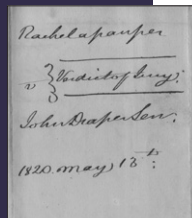 Rachel a pauper
v } Verdict of Jury;
John Draper Sen;
1820. May, 15th: